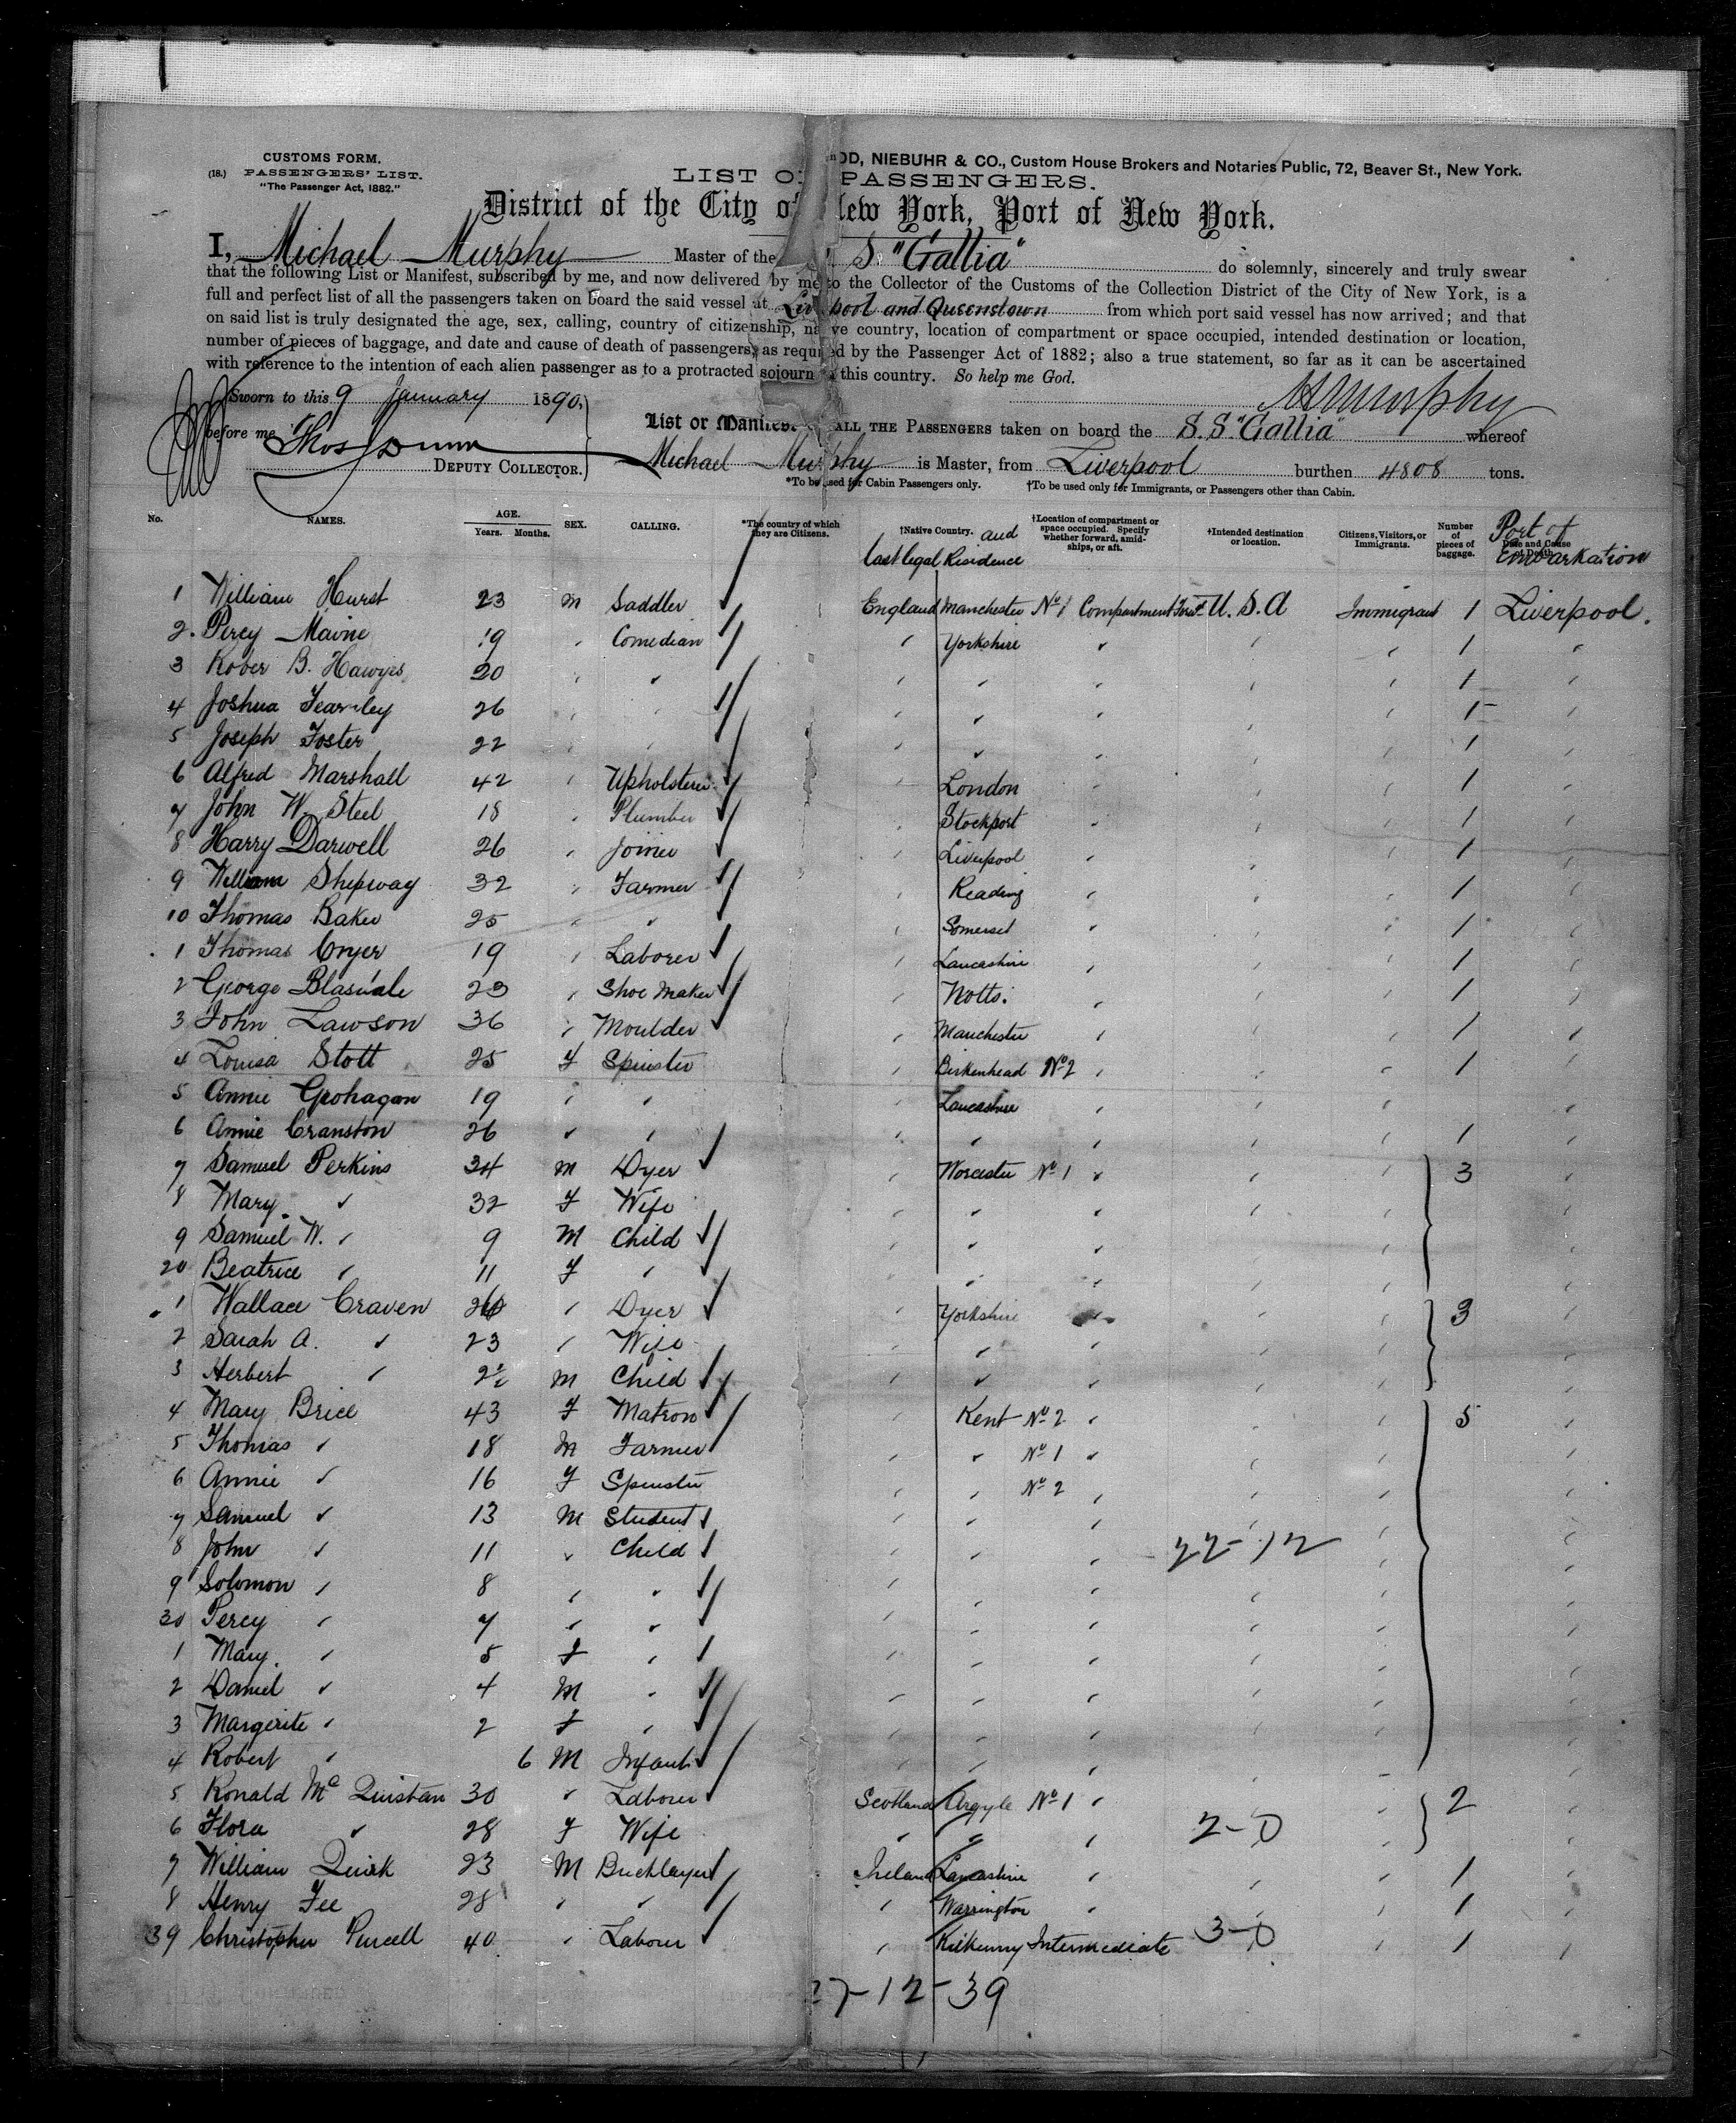 CUSTOMS FORM.
(18.) PASSENGERS' LIST.
"The Passenger Act, 1882."
OD, NIEBUHR & CO., Custom House Brokers and Notaries Public, 72, Beaver St., New York.
LIST OF PASSENGERS.
District of the City of New York, Port of New York.
I, Michael Murphy Master of the S. "Gallia" do solemnly, sincerely and truly swear
that the following List or Manifest, subscribed by me, and now delivered by me to the Collector of the Customs of the Collection District of the City of New York, is a
full and perfect list of all the passengers taken on board the said vessel at Liverpool and Queenstown from which port said vessel has now arrived; and that
on said list is truly designated the age, sex, calling, country of citizenship, native country, location of compartment or space occupied, intended destination or location,
number of pieces of baggage, and date and cause of death of passengers, as required by the Passenger Act of 1882; also a true statement, so far as it can be ascertained
with reference to the intention of each alien passenger as to a protracted sojourn in this country. So help me God.
Sworn to this 9 January 1890, M Murphy
before me Thos Dunn
DEPUTY COLLECTOR.
List or Manifest of ALL THE PASSENGERS taken on board the S. S. "Gallia" whereof
Michael Murphy is Master, from Liverpool burthen 4808 tons.
*To be used for Cabin Passengers only. †To be used only for Immigrants, or Passengers other than Cabin.
No. NAMES. AGE. Years. Months. SEX. CALLING. *The country of which they are Citizens. †Native Country. and last legal Residence †Location of compartment or space occupied. Specify whether forward, amidships, or aft. †Intended destination or location. Citizens, Visitors, or Immigrants. Number of pieces of baggage. Date and Cause of Death. Port of Embarkation
1 William Hurst 23 M Saddler England Manchester No 1 Compartment U.S.A Immigrant 1 Liverpool.
2 Percy Maine 19 " Comedian " Yorkshire " " " 1 "
3 Rober B. Hawyes 20 " " " " " " " 1 "
4 Joshua Fearnley 26 " " " " " " " 1 "
5 Joseph Foster 22 " " " " " " " 1 "
6 Alfred Marshall 42 " Upholsterer " London " " " 1 "
7 John W. Steel 18 " Plumber " Stockport " " " 1 "
8 Harry Darwell 26 " Joiner " Liverpool " " " 1 "
9 William Shipway 32 " Farmer " Reading " " " 1 "
10 Thomas Baker 25 " " " Somerset " " " 1 "
1 Thomas Cryer 19 " Laborer " Lancashire " " " 1 "
2 George Blasdale 23 " Shoe Maker " Notts. " " " 1 "
3 John Lawson 36 " Moulder " Manchester " " " 1 "
4 Louisa Stott 25 F Spinster " Birkenhead No 2 " " " 1 "
5 Annie Geohagan 19 " " " Lancashire " " " "
6 Annie Cranston 26 " " " " " " " 1 "
7 Samuel Perkins 34 M Dyer " Worcester No 1 " " " 3 "
8 Mary " 32 F Wife " " " " " "
9 Samuel W. " 9 M Child " " " " " "
20 Beatrice " 11 F " " " " " " "
1 Wallace Craven 26 " Dyer " Yorkshire " " 3 "
2 Sarah A. " 23 " Wife " " " " "
3 Herbert " 2½ M Child " " " " " "
4 Mary Brice 43 F Matron " Kent No 2 " " " 5 "
5 Thomas " 18 M Farmer " " No 1 " " " "
6 Annie " 16 F Spinster " " No 2 " " " "
7 Samuel " 13 M Student " " " " " "
8 John " 11 " Child " " " 22-12 " "
9 Solomon " 8 " " " " " " " "
30 Percy " 7 " " " " " " " "
1 Mary " 5 F " " " " " " "
2 Daniel " 4 M " " " " " " "
3 Margerite " 2 F " " " " " " "
4 Robert " 6 M Infant " " " " " "
5 Ronald Mc Quistan 30 " Laborer Scotland Argyle No 1 " " " 2 "
6 Flora " 28 F Wife " " " 2-0 " "
7 William Quirk 23 M Bricklayer Ireland Lancashire " " " 1 "
8 Henry Fee 28 " " " Warrington " " " 1 "
39 Christopher Purcell 40 " Laborer " Kilkenny Intermediate 3-0 " 1 "
27-12-39